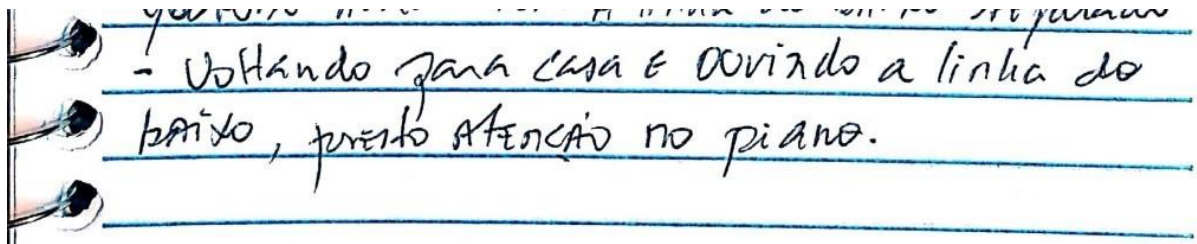 - Voltando para casa e ouvindo a linha do
baixo, presto atenção no piano.